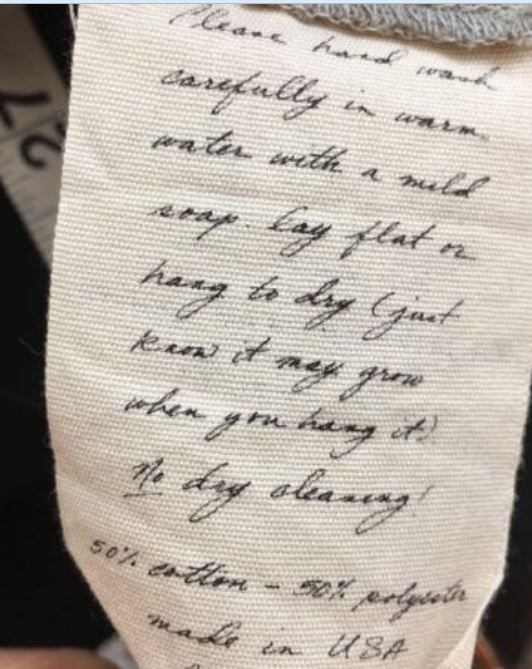 Please hand wash
carefully in warm
water with a mild
soap. Lay flat or
hang to dry (just
know it may grow
when you hang it)
No dry cleaning!
50% cotton - 50% polyester
made in USA
27